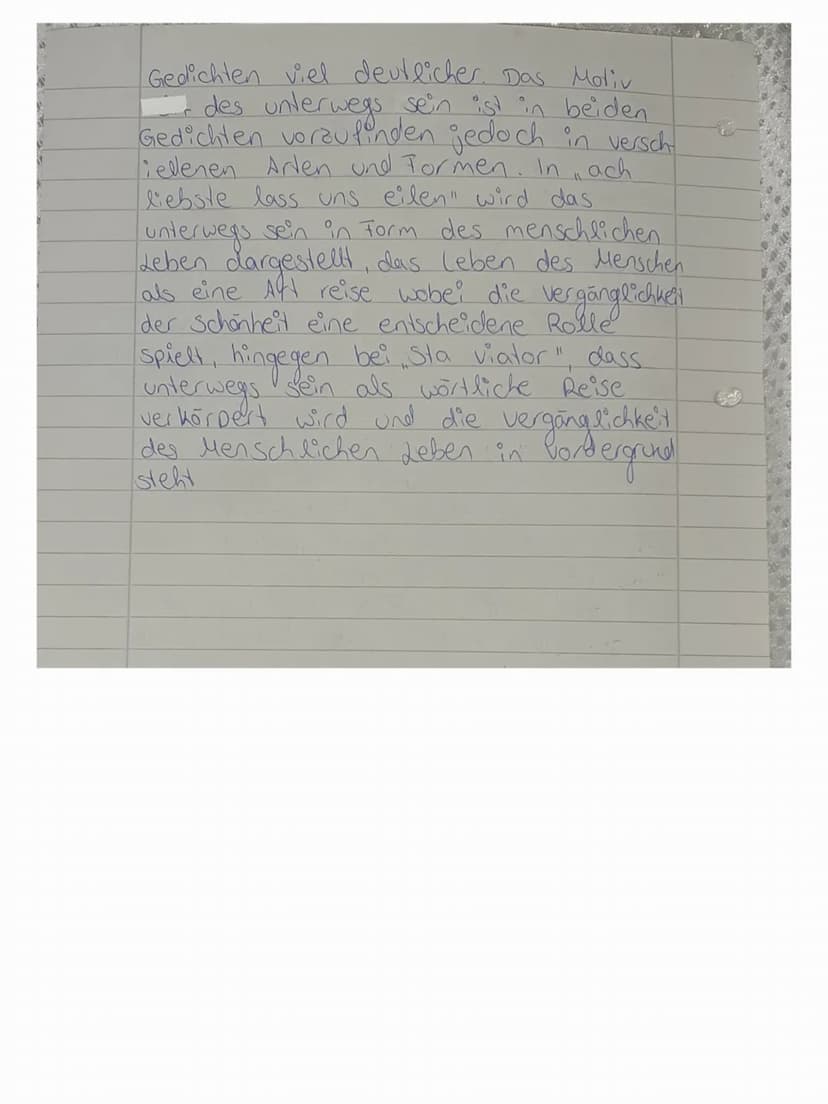 Gedichten viel deutlicher. Das Motiv
des unterwegs sein ist in beiden
Gedichten vorzufinden jedoch in versch-
iedenen Arten und Formen. In „ach
liebste lass uns eilen" wird das
unterwegs sein in Form des menschlichen
Leben dargestellt, das Leben des Menschen
als eine Art reise wobei die vergänglichkeit
der Schönheit eine entscheidene Rolle
spielt, hingegen bei „Sta viator", dass
unterwegs sein als wörtliche Reise
verkörpert wird und die vergänglichkeit
des Menschlichen Leben in Vordergrund
steht